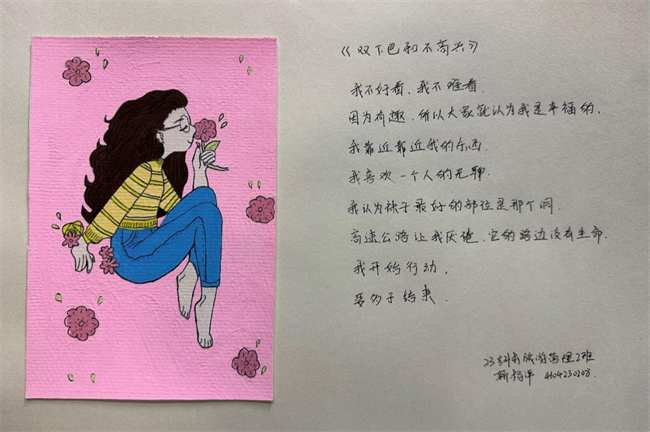 《双下巴和不高兴》
我不好看，我不难看.
因为有趣，所以大家就认为我是幸福的.
我靠近靠近我的东西.
我喜欢一个人的无聊.
我认为袜子最好的部位是那个洞.
高速公路让我厌倦，它的路边没有生命.
我开始行动.
要么结束.
23 旅游管理2班
4104230208.